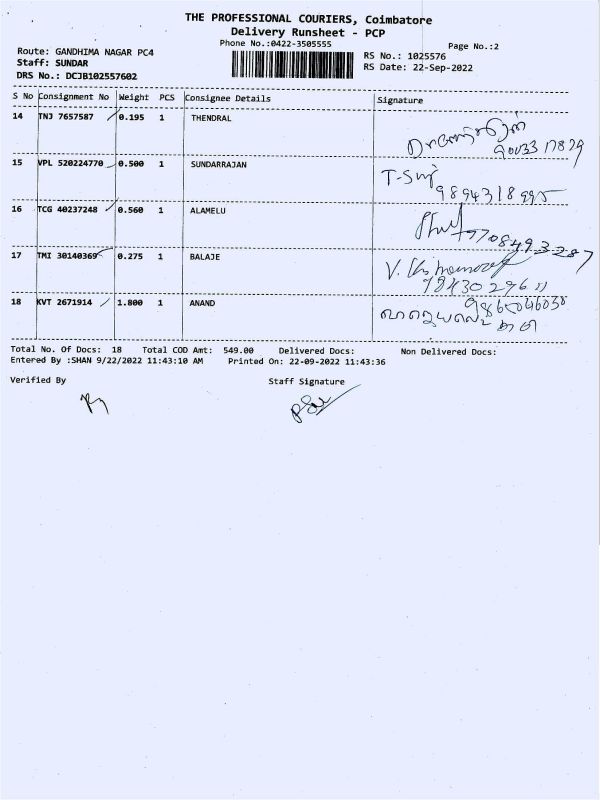 THE PROFESSIONAL COURIERS, Coimbatore
Delivery Runsheet - PCP
Phone No.:0422-3505555
Page No.:2
Route: GANDHIMA NAGAR PC4
RS No.: 1025576
Staff: SUNDAR
RS Date: 22-Sep-2022
DRS No.: DCJB102557602
S No Consignment No Weight PCS Consignee Details Signature
14 TNJ 7657587 0.195 1 THENDRAL
90033 17879
15 VPL 520224770 0.500 1 SUNDARRAJAN
T-
9894318995
16 TCG 40237248 0.560 1 ALAMELU
9708493287
17 TMI 30140369 0.275 1 BALAJE
V.
18 KVT 2671914 1.800 1 ANAND
9865046030
Total No. Of Docs: 18 Total COD Amt: 549.00 Delivered Docs: Non Delivered Docs:
Entered By :SHAN 9/22/2022 11:43:10 AM Printed On: 22-09-2022 11:43:36
Verified By Staff Signature